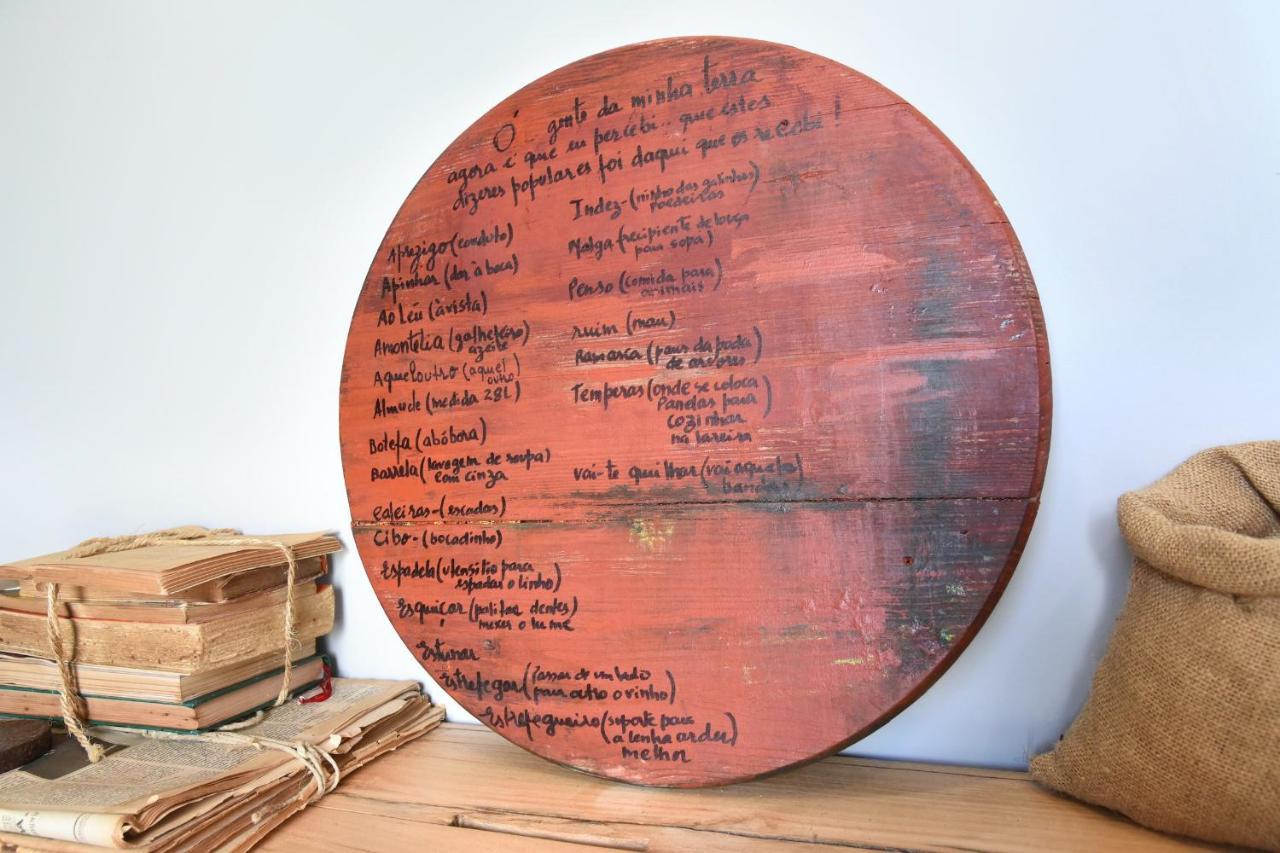 Ó gente da minha terra
agora é que eu percebi.. que estes
dizeres populares foi daqui que os recebi!
Aprezigo (conduto)
Apinhar (dor à boca)
Ao Léu (àvista)
Amontelia (galheteiro)
azeite
Aqueloutro (aquel
outro)
Almude (medida 28L)
Botefa (abóbora)
Barrela (lavagem de roupa)
com cinza
Caleiras-(escadas)
Cibo-(bocadinho)
Espadela (utensilio para
espadar o linho)
Esquiçar (palitar dentes)
mexer o lume
Esturrar
Estrefegar (Passar de um lado
para outro o vinho)
Estrefegueiro (suporte para
a lenha arder)
melhor
Indez-(ninho das galinhas)
poedeiras
Malga (recipiente de louça
para sopa)
Penso (comida para)
animais
ruim (mau)
Ramasca (paus da poda)
de arvores
Temperas (onde se coloca
Panelas para)
cozinhar
na lareira
vai-te quilhar (vai aquela)
bandas